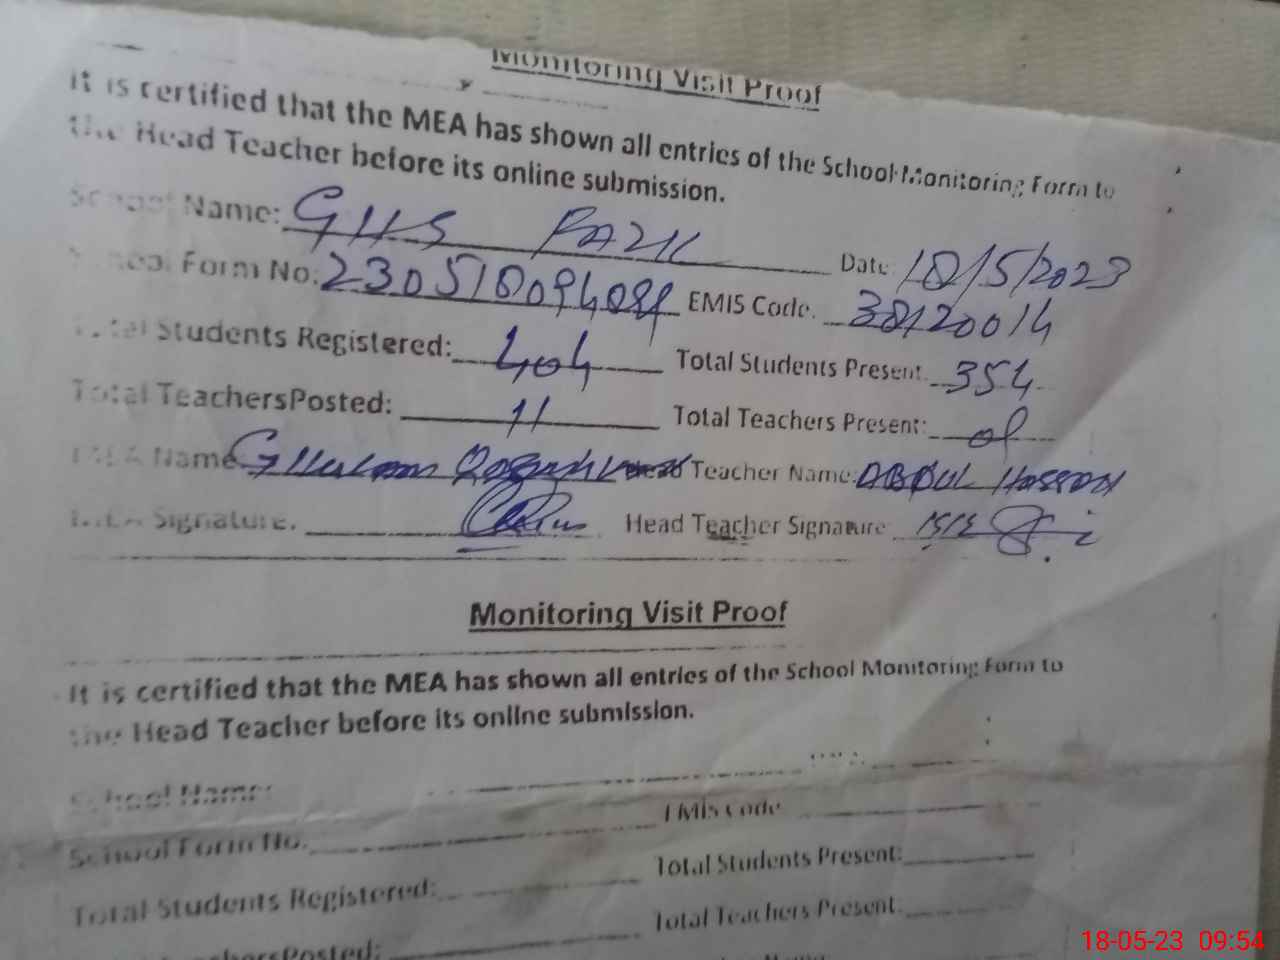 Monitoring Visit Proof
It is certified that the MEA has shown all entries of the School Monitoring Form to
the Head Teacher before its online submission.
School Name: GHS Date: 18/5/2023
School Form No: EMIS Code. 38120014
Total Students Registered: 404 Total Students Present. 354
Total TeachersPosted: 11 Total Teachers Present:
MEA Name Head Teacher Name: ABDUL Hassan
MEA Signature. Head Teacher Signature
Monitoring Visit Proof
It is certified that the MEA has shown all entries of the School Monitoring Form to
the Head Teacher before its online submission.
School Name:
School Form No. EMIS Code
Total Students Registered: Total Students Present:
Total Teachers Present.
18-05-23 09:54